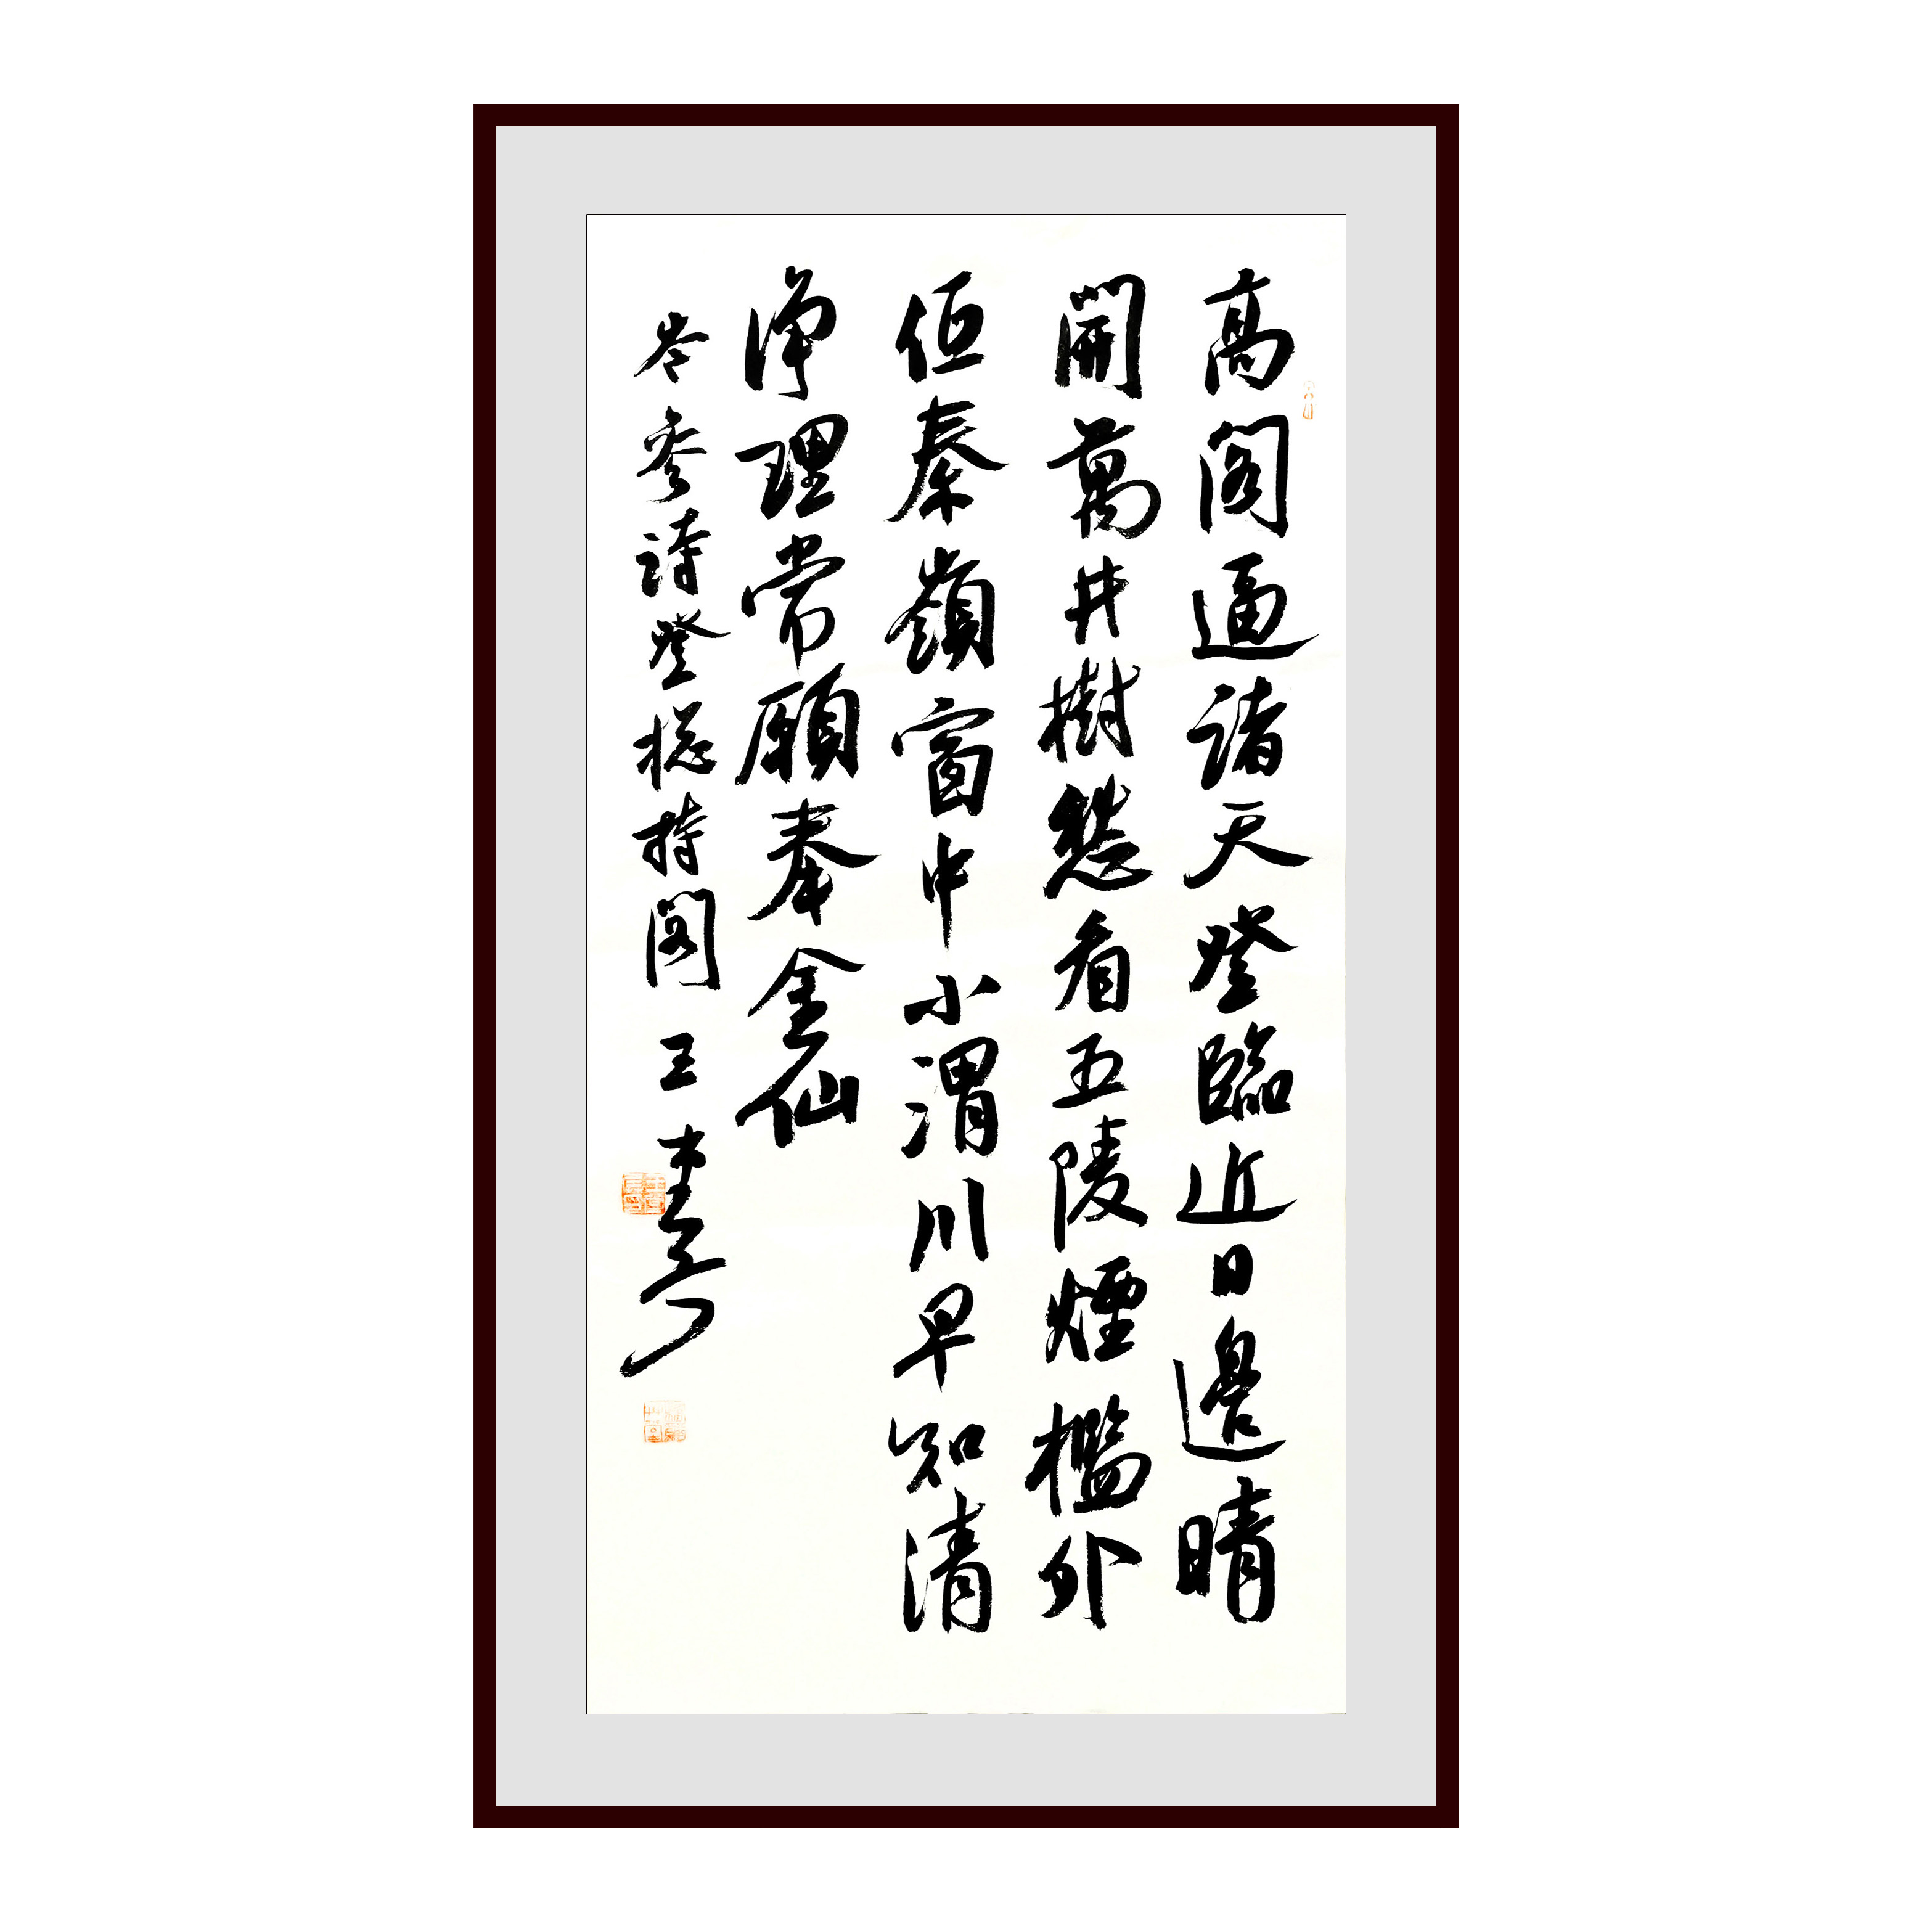 高閣逼諸天登臨近日邊晴
開萬井樹愁看五陵煙檻外
低秦嶺窗中小渭川早知清
淨理常願奉金仙
岑參詩登捴持閣 王